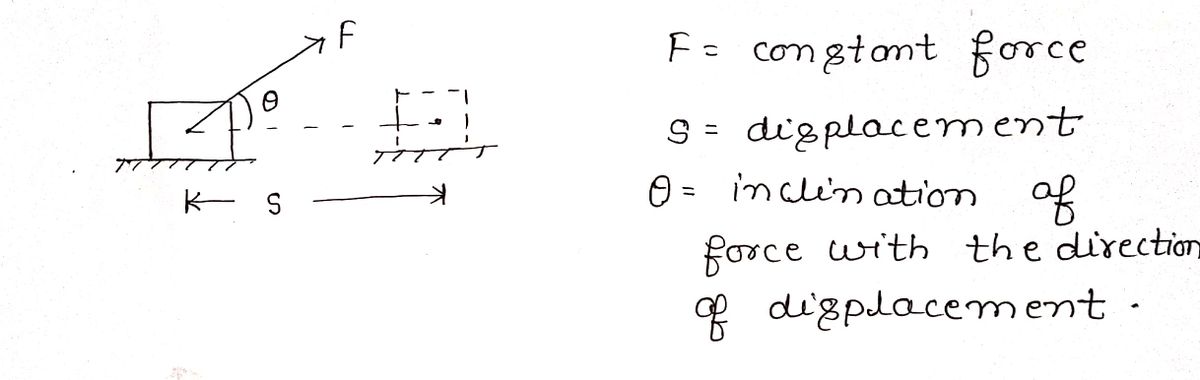 F
θ
S
F = constant force
S = displacement
θ = inclination of
force with the direction
of displacement.